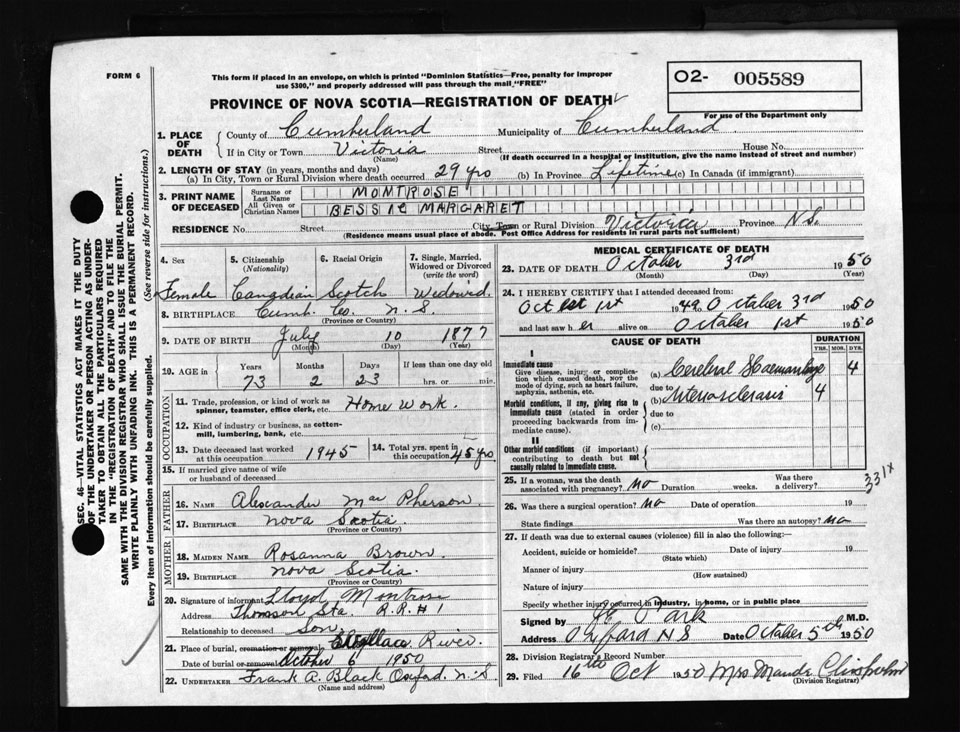 FORM 6
This form if placed in an envelope, on which is printed "Dominion Statistics—Free, penalty for improper
use $300," and properly addressed will pass through the mail "FREE"
O2- 005589
For use of the Department only
PROVINCE OF NOVA SCOTIA—REGISTRATION OF DEATH
1. PLACE OF DEATH
County of Cumberland Municipality of Cumberland
If in City or Town Victoria Street House No.
(Name) (If death occurred in a hospital or institution, give the name instead of street and number)
2. LENGTH OF STAY (in years, months and days)
(a) In City, Town or Rural Division where death occurred 29 yrs (b) In Province Lifetime (c) In Canada (if immigrant)
3. PRINT NAME OF DECEASED
Surname or Last Name MONTROSE
All Given or Christian Names BESSIE MARGARET
RESIDENCE No. Street City, Town or Rural Division Victoria Province N.S.
(Residence means usual place of abode. Post Office Address for residents in rural parts not sufficient)
4. Sex 5. Citizenship (Nationality) 6. Racial Origin 7. Single, Married, Widowed or Divorced (write the word)
Female Canadian Scotch Widowed
8. BIRTHPLACE Cumb. Co. N. S.
(Province or Country)
9. DATE OF BIRTH July 10 1877
(Month) (Day) (Year)
10. AGE in Years Months Days If less than one day old
73 2 23 hrs. or min.
OCCUPATION
11. Trade, profession, or kind of work as spinner, teamster, office clerk, etc. Home Work.
12. Kind of industry or business, as cotton-mill, lumbering, bank, etc.
13. Date deceased last worked at this occupation 1945 14. Total yrs. spent in this occupation 45 yrs
15. If married give name of wife or husband of deceased
FATHER
16. NAME Alexander Mac Pherson
17. BIRTHPLACE Nova Scotia.
(Province or Country)
MOTHER
18. MAIDEN NAME Rosanna Brown.
19. BIRTHPLACE Nova Scotia.
(Province or Country)
20. Signature of informant Lloyd Montrose
Address Thomson Sta. R.R.#1
Relationship to deceased Son.
21. Place of burial, cremation or removal, Wallace River.
Date of burial or removal October 6 1950
22. UNDERTAKER Frank A. Black Oxford. N.S.
(Name and address)
MEDICAL CERTIFICATE OF DEATH
23. DATE OF DEATH October 3rd 1950
(Month) (Day) (Year)
24. I HEREBY CERTIFY that I attended deceased from:
Oct 1st 1949 to October 3rd 1950
and last saw her alive on October 1st 1950
CAUSE OF DEATH DURATION
YRS. MOS. DYS.
I
Immediate cause
Give disease, injury or complication which caused death, NOT the mode of dying, such as heart failure, asphyxia, asthenia, etc.
(a) Cerebral Haemorrhage 4
due to
(b) Arteriosclerosis 4
Morbid conditions, if any, giving rise to immediate cause (stated in order proceeding backwards from immediate cause).
due to
(c)
II
Other morbid conditions (if important) contributing to death but not causally related to immediate cause.
25. If a woman, was the death associated with pregnancy? No Duration weeks. Was there a delivery?
331x
26. Was there a surgical operation? No Date of operation 19
State findings Was there an autopsy? No
27. If death was due to external causes (violence) fill in also the following:—
Accident, suicide or homicide? Date of injury 19
(State which)
Manner of injury
(How sustained)
Nature of injury
Specify whether injury occurred in industry, in home, or in public place
Signed by Park M.D.
Address Oxford N S Date October 5th 1950
28. Division Registrar's Record Number
29. Filed 16th Oct 1950 Mrs Maude Chisholm
(Division Registrar)
SEC. 46—VITAL STATISTICS ACT MAKES IT THE DUTY
OF THE UNDERTAKER OR PERSON ACTING AS UNDER-
TAKER TO OBTAIN ALL THE PARTICULARS REQUIRED
IN THE "REGISTRATION OF DEATH" AND TO FILE THE
SAME WITH THE DIVISION REGISTRAR WHO SHALL ISSUE THE BURIAL PERMIT.
WRITE PLAINLY WITH UNFADING INK. THIS IS A PERMANENT RECORD.
Every item of information should be carefully supplied. (See reverse side for instructions.)